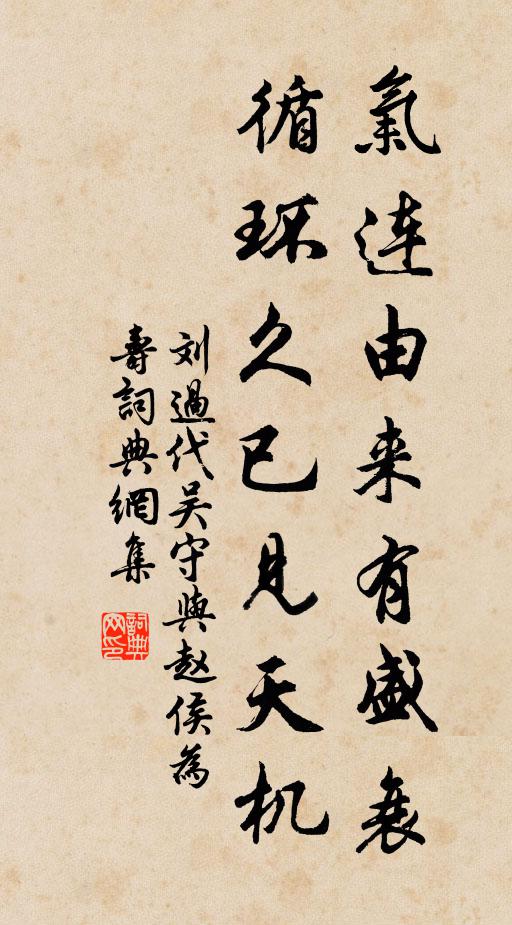 氣連由来有盛衰
循环久已見天机
刘過代吴守與赵侯為
壽詞典網集
詞典网印